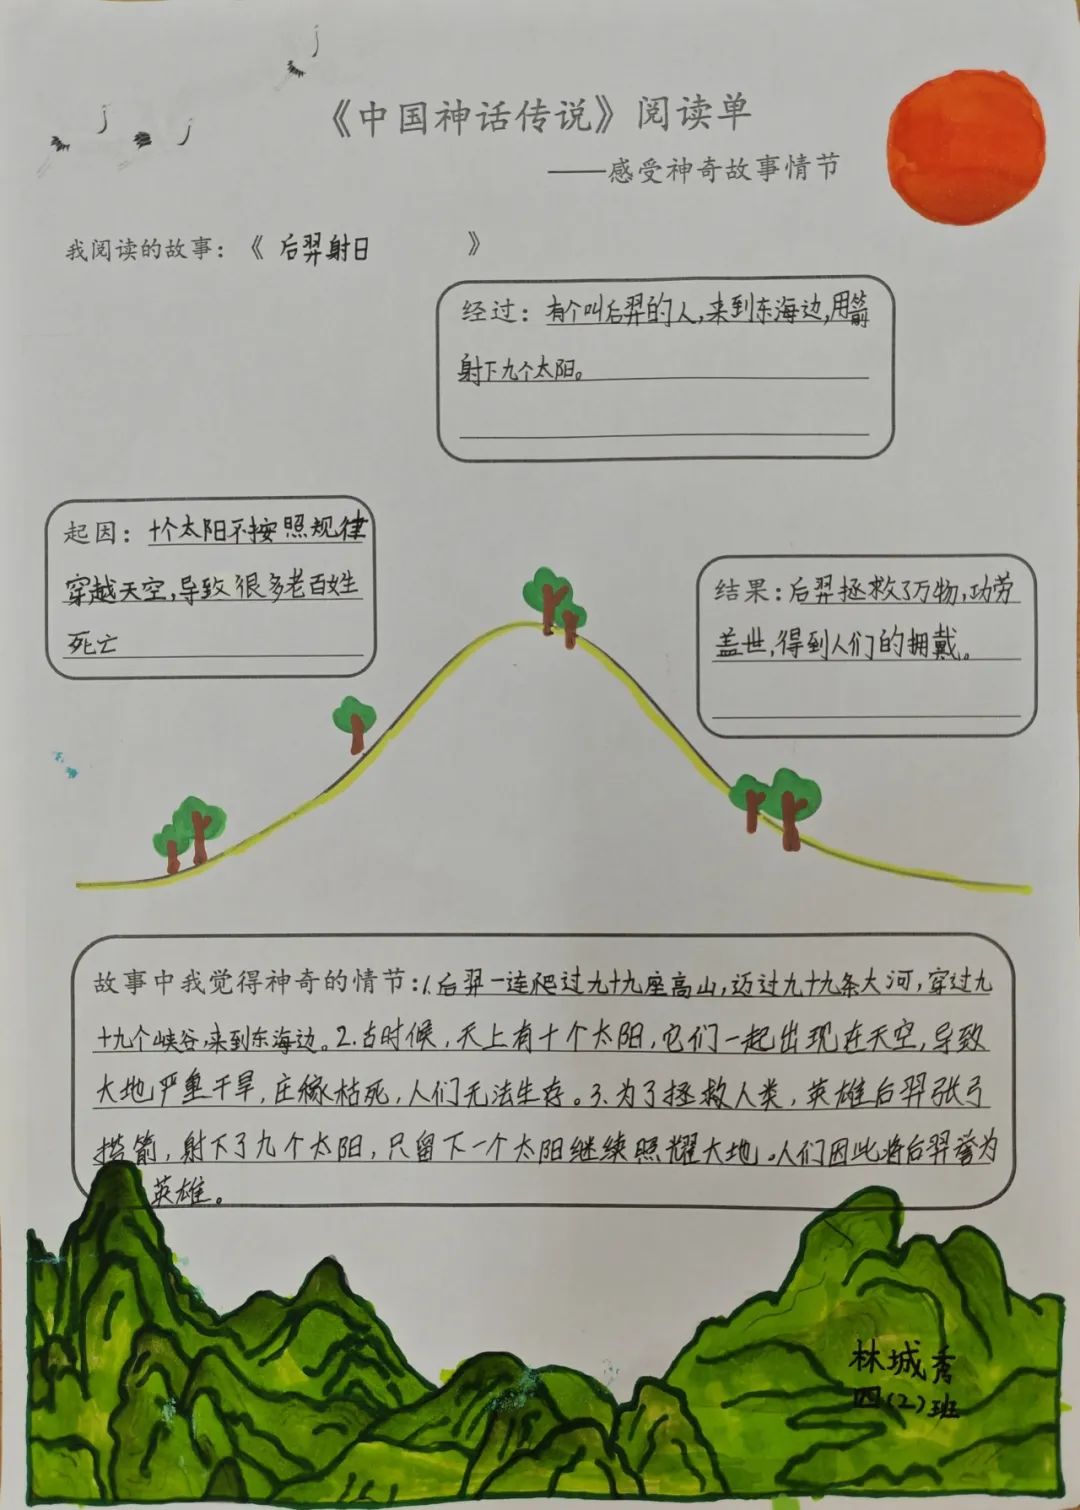 《中国神话传说》阅读单
——感受神奇故事情节
我阅读的故事：《 后羿射日 》
经过：有个叫后羿的人,来到东海边,用箭
射下九个太阳。
起因：十个太阳不按照规律
穿越天空,导致很多老百姓
死亡
结果：后羿拯救了万物,功劳
盖世,得到人们的拥戴。
故事中我觉得神奇的情节：1.后羿一连爬过九十九座高山,迈过九十九条大河,穿过九
十九个峡谷,来到东海边。2.古时候,天上有十个太阳,它们一起出现在天空,导致
大地严重干旱,庄稼枯死,人们无法生存。3.为了拯救人类,英雄后羿张弓
搭箭,射下了九个太阳,只留下一个太阳继续照耀大地。人们因此将后羿誉为
英雄。
林城秀
四(2)班